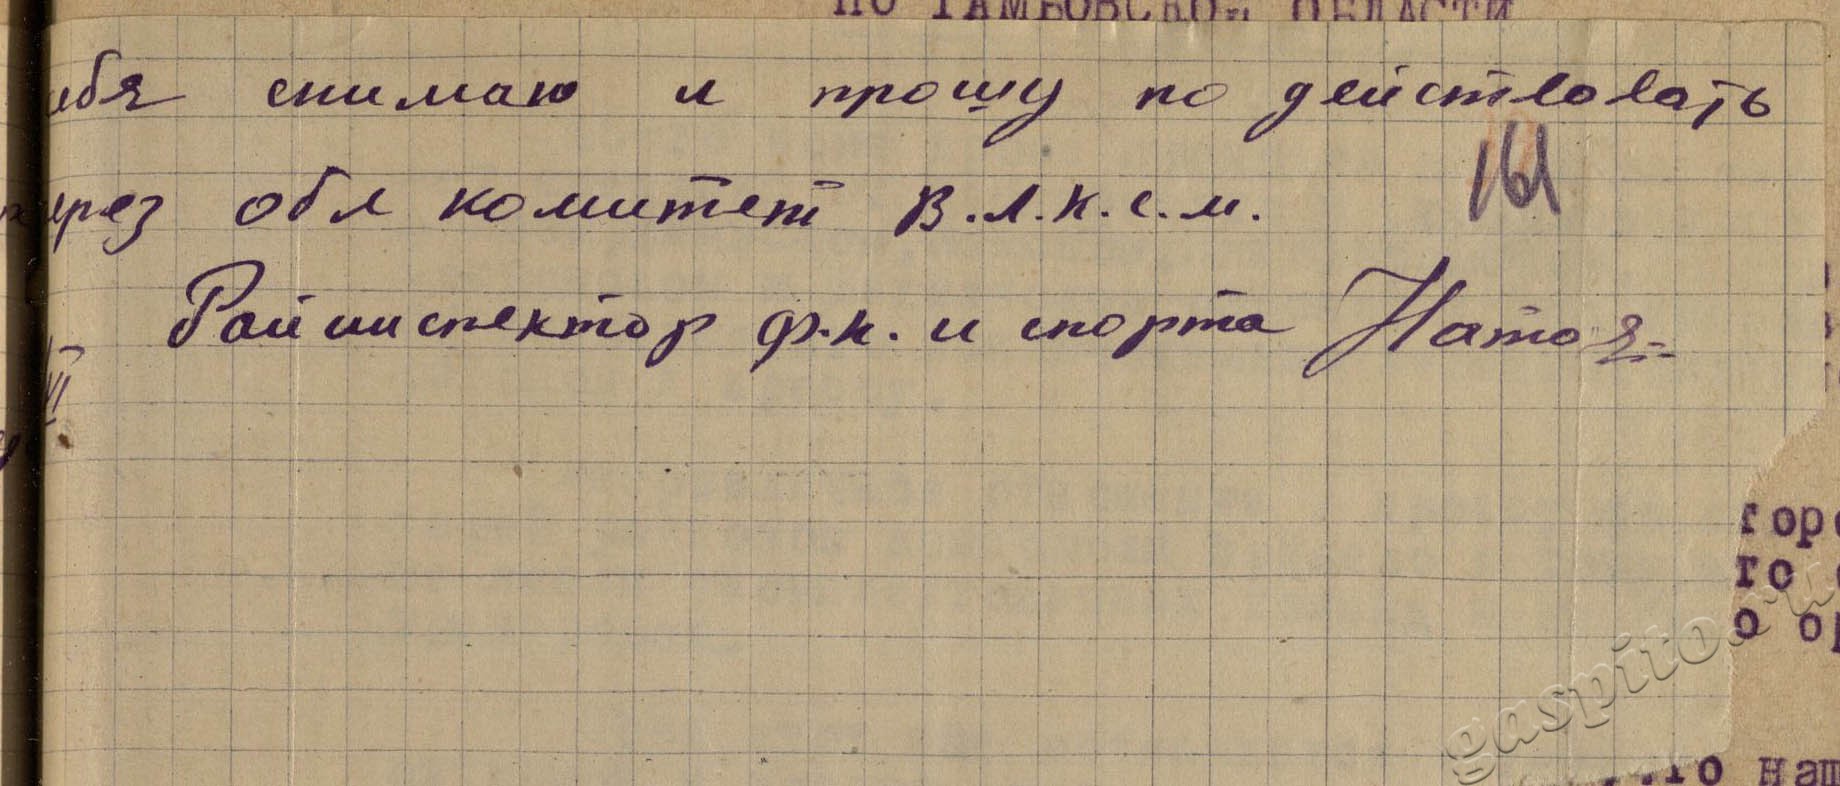 ПО ТАМБОВСКОЙ ОБЛАСТИ
ебя снимаю и прошу по действовать
161
через обл комитет В.Л.К.С.М.
Райинспектор ф.к. и спорта
VI
горо
го
о ор
го наш
gaspito.ru